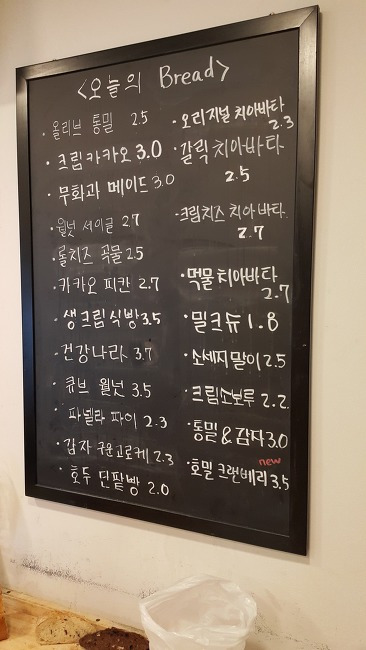 <오늘의 Bread>
· 올리브 통밀 2.5
· 크림카카오 3.0
· 무화과 메이드 3.0
· 월넛 서이클 2.7
· 롤치즈 곡물 2.5
· 카카오 피칸 2.7
· 생크림식빵 3.5
- 건강나라 3.7
· 큐브 월넛 3.5
· 파넬라 파이 2.3
· 감자 구운고로케 2.3
· 호두 단팥빵 2.0
· 오리지널 치아바타
2.3
· 갈릭 치아바타
2.5
· 크림치즈 치아바타
2.7
· 먹물치아바타
2.7
· 밀크쥬 1.8
· 소세지말이 2.5
· 크림소보루 2.2
· 통밀&감자 3.0
new
· 호밀 크랜베리 3.5